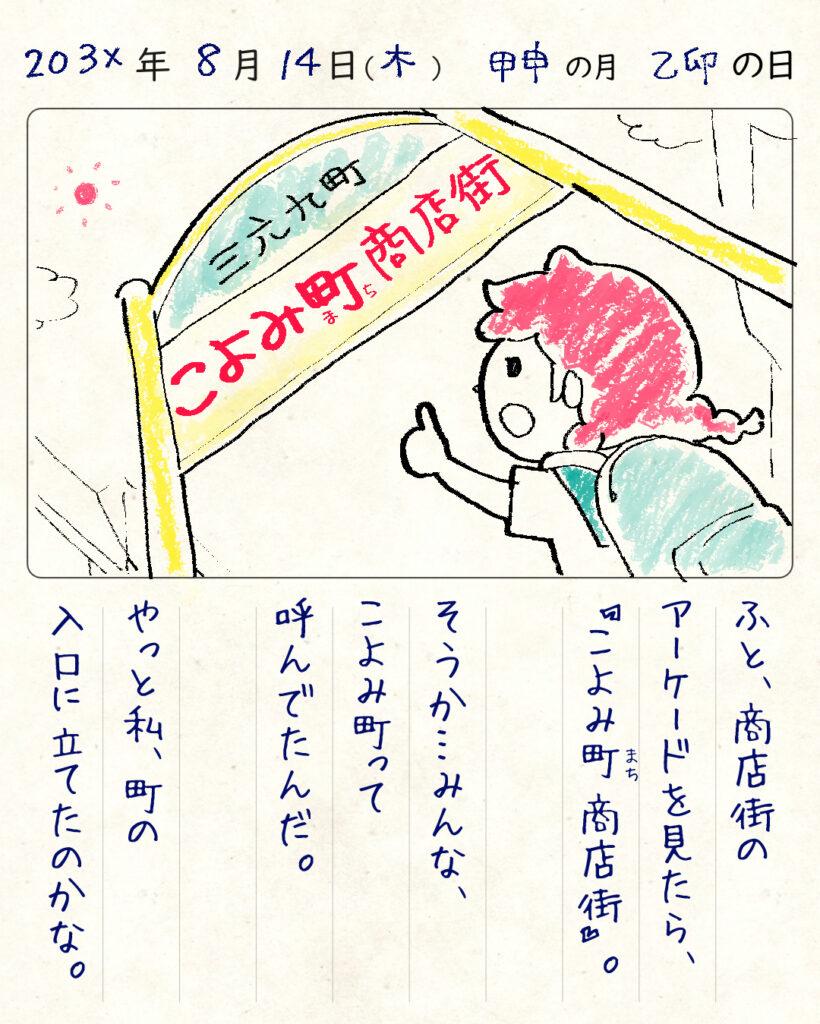 203x年 8月 14日(木) 甲申の月 乙卯の日
三元九町
こよみ町商店街
まち
ふと、商店街の
アーケードを見たら、
『こよみ町商店街』。
まち
そうか…みんな、
こよみ町って
呼んでたんだ。
やっと私、町の
入口に立てたのかな。